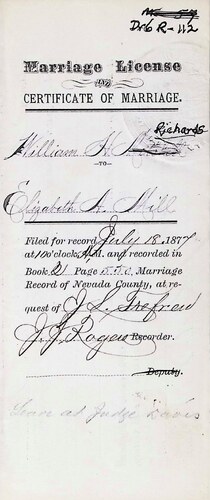 Dr6 R-112
Marriage License
AND
CERTIFICATE OF MARRIAGE.
Richards
William H.
—TO—
Elizabeth A. Hill
Filed for record July 18, 1877
at 10 o'clock A.M. and recorded in
Book 21 Page Marriage
Record of Nevada County, at re-
quest of J. L.
J. J. Rogers Recorder.
Deputy.
at Judge